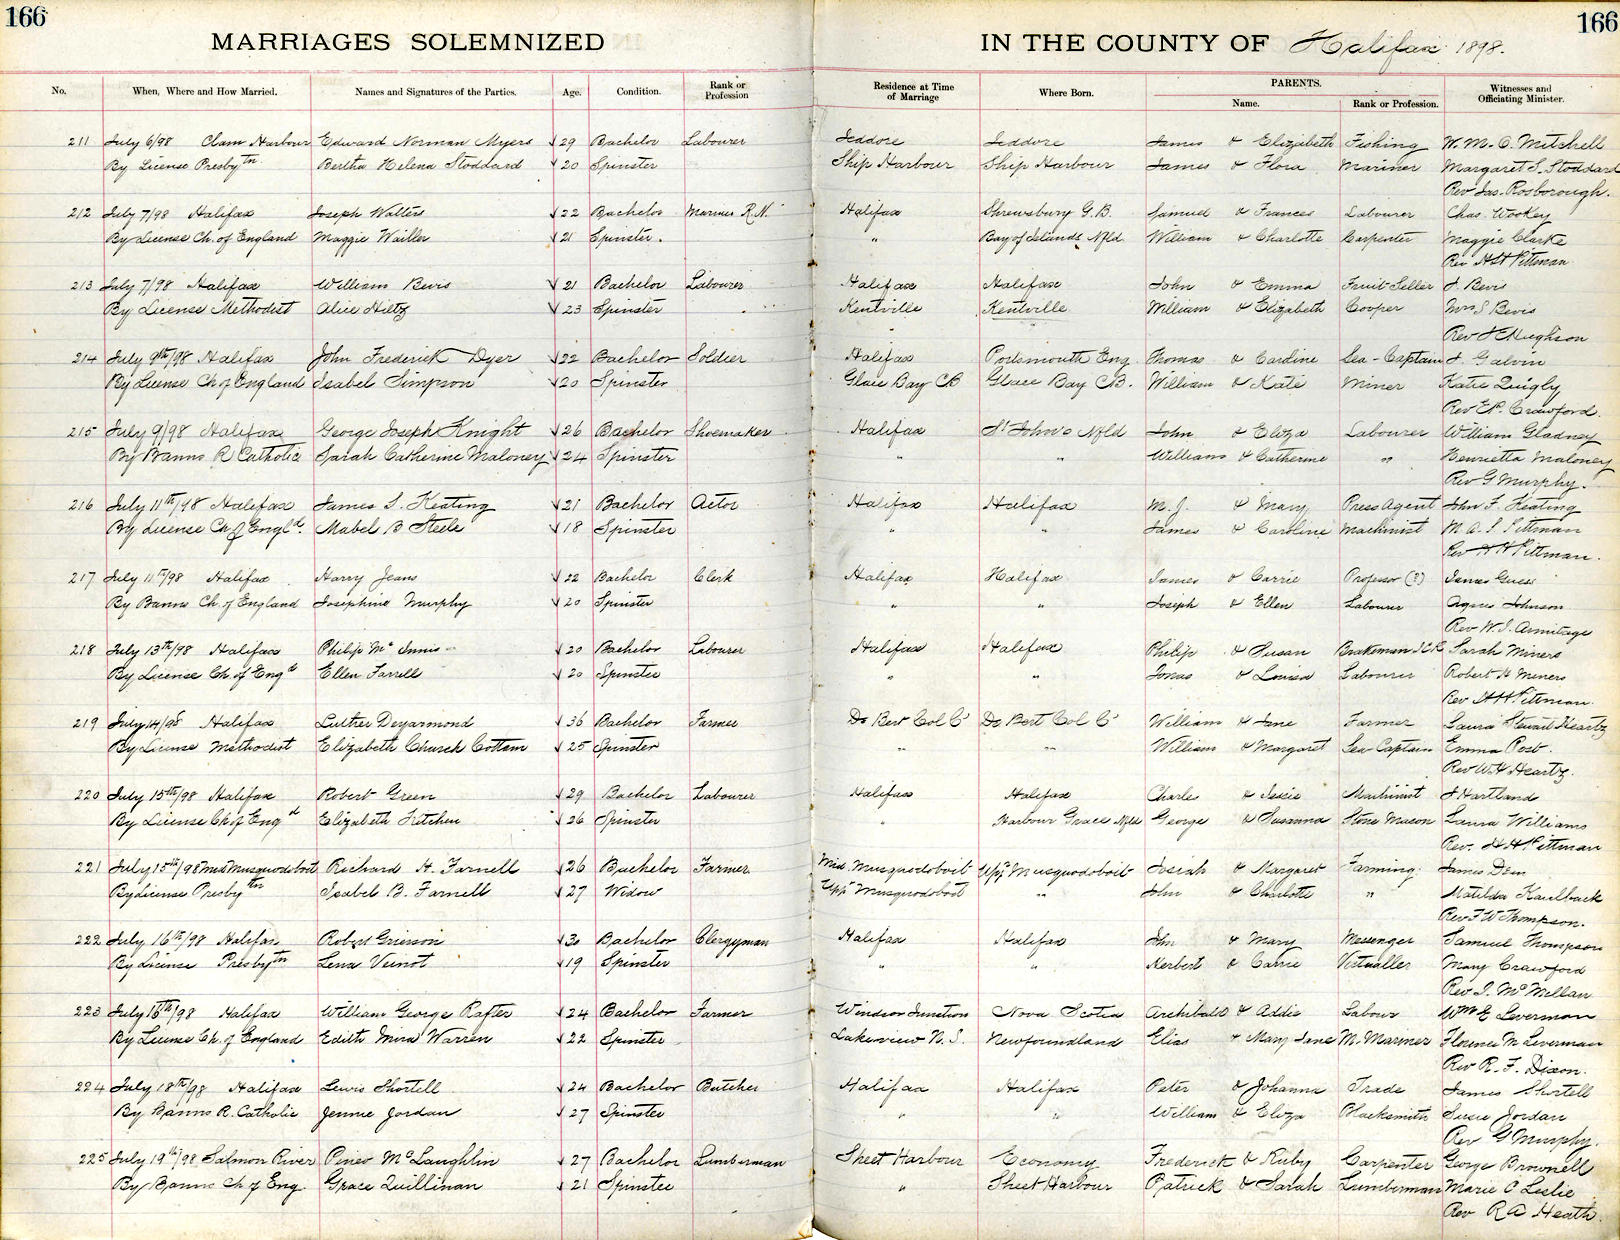 166
166
MARRIAGES SOLEMNIZED IN THE COUNTY OF Halifax 1898.
No. When, Where and How Married. Names and Signatures of the Parties. Age. Condition. Rank or Profession Residence at Time of Marriage Where Born. PARENTS. Name. Rank or Profession. Witnesses and Officiating Minister.
211 July 6/98 Clam Harbour Edward Norman Myers 29 Bachelor Labourer Jeddore Jeddore James & Elizibeth Fishing W. M. O. Mitchell
By License Presbytn. Bertha Helena Stoddard 20 Spinster Ship Harbour Ship Harbour James & Flora Mariner Margaret S. Stoddard
Rev Jas. Rosborough.
212 July 7/98 Halifax Joseph Walters 22 Bachelor Marines R.N. Halifax Shrewsbury G.B. Samuel & Frances Labourer Chas. Wookey
By License Ch. of England Maggie 21 Spinster. " Bay of Islands Nfld. William & Charlotte Carpenter Maggie Clarke
Rev Pittman
213 July 7/98 Halifax William Bevis 21 Bachelor Labourer Halifax Halifax John & Emma Fruit Seller J. Bevis
By License Methodist Alice Hiltz 23 Spinster Kentville Kentville William & Elizabeth Cooper Mrs S Bevis
Rev J Hughson
214 July 9th/98 Halifax John Frederick Dyer 22 Bachelor Soldier Halifax Portsmouth Eng Thomas & Caroline Sea-Captain J Galvin
By License Ch of England Isabel Simpson 20 Spinster Glace Bay CB Glace Bay CB. William & Kate Miner Katie Quigly
Rev E.P. Crawford.
215 July 9/98 Halifax George Joseph Knight 26 Bachelor Shoemaker Halifax St John's Nfld John & Eliza Labourer William Gladney
By Banns R Catholic Sarah Catherine Maloney 24 Spinster " " William & Catherine " Henrietta Maloney
Rev G Murphy.
216 July 11th/98 Halifax James S. Keating 21 Bachelor Actor Halifax Halifax M. J. & Mary Press Agent John F. Keating
By License Ch of Engld. Mabel B Steele 18 Spinster " " James & Caroline Machinist M. A. S Pittman
Rev H H Pittman.
217 July 11th/98 Halifax Harry Jeans 22 Bachelor Clerk Halifax Halifax James & Carrie Professor (?) James Guess
By Banns Ch. of England Josephine Murphy 20 Spinster " " Joseph & Ellen Labourer Agnes Johnson
Rev W. J. Armitage
218 July 13th/98 Halifax Philip Mc Innis 20 Bachelor Labourer Halifax Halifax Philip & Susan Brakeman I.C.R. Sarah Miners
By License Ch of Engd Ellen Farrell 20 Spinster " " Jonas & Louisa Labourer Robert H Miners
Rev H H Pittman.
219 July 14/98 Halifax Luther Deyarmond 36 Bachelor Farmer De Bert Col Co De Bert Col Co William & Jane Farmer Laura Stewart Heartz
By License Methodist Elizabeth Church Cottam 25 Spinster " " William & Margaret Sea Captain Emma Post.
Rev W H Heartz.
220 July 15th/98 Halifax Robert Green 29 Bachelor Labourer Halifax Halifax Charles & Jessie Machinist J Hartland
By License Ch of Engd Elizabeth Fetchen 26 Spinster " Harbour Grace Nfld George & Susanna Stone Mason Laura Williams
Rev. H H Pittman
221 July 15th/98 Mid Musquodoboit Richard H. Farnell 26 Bachelor Farmer Mid. Musquodoboit Upr Musquodoboit Josiah & Margaret Farming. James Dean
By License Presbytn Isabel B. Farnell 27 Widow Upr Musquodoboit " John & Charlotte " Matilda Kaulback
Rev F W Thompson.
222 July 16th/98 Halifax Robert Grierson 30 Bachelor Clergyman Halifax Halifax John & Mary Messenger Samuel Thompson
By License Presbytn Lena Veinot 19 Spinster " " Herbert & Carrie Victualler Mary Crawford
Rev J. Mc Millan
223 July 16th/98 Halifax William George Rafter 24 Bachelor Farmer Windsor Junction Nova Scotia Archibald & Addie Labour Wm E Leverman
By License Ch. of England Edith Mira Warren 22 Spinster Lakeview N.S. Newfoundland Elias & Mary Jane M. Mariner Florence M Leverman
Rev R. F. Dixon.
224 July 18th/98 Halifax Lewis Shortell 24 Bachelor Butcher Halifax Halifax Peter & Johanna Trade James Shortell
By Banns R. Catholic Jennie Jordan 27 Spinster " " William & Eliza Blacksmith Susie Jordan
Rev G Murphy.
225 July 19th/98 Salmon River Mc Laughlin 27 Bachelor Lumberman Sheet Harbour Economy Frederick & Ruby Carpenter George Brownell
By Banns Ch of Eng Grace Quillinan 21 Spinster " Sheet Harbour Patrick & Sarah Lumberman Marie C Leslie
Rev R A Heath.